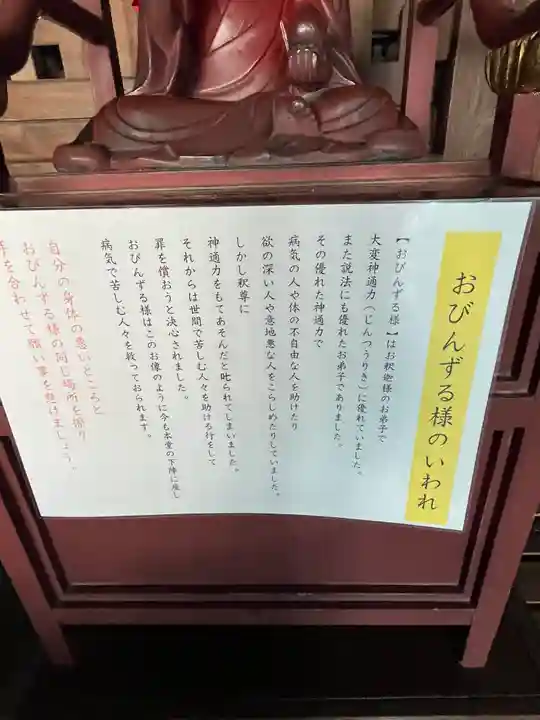 おびんずる様のいわれ
【おびんずる様】はお釈迦様のお弟子で
大変神通力（じんつうりき）に優れていました。
また説法にも優れたお弟子でありました。
その優れた神通力で
病気の人や体の不自由な人を助けたり
欲の深い人や意地悪な人をこらしめたりしていました。
しかし釈尊に
神通力をもてあそんだと叱られてしまいました。
それからは世間で苦しむ人々を助ける行をして
罪を償おうと決心されました。
おびんずる様はこのお像のように今も本堂の下陣に座し
病気で苦しむ人々を救っておられます。
自分の身体の悪いところと
おびんずる様の同じ場所を擦り
手を合わせて願い事を懸けましょう。